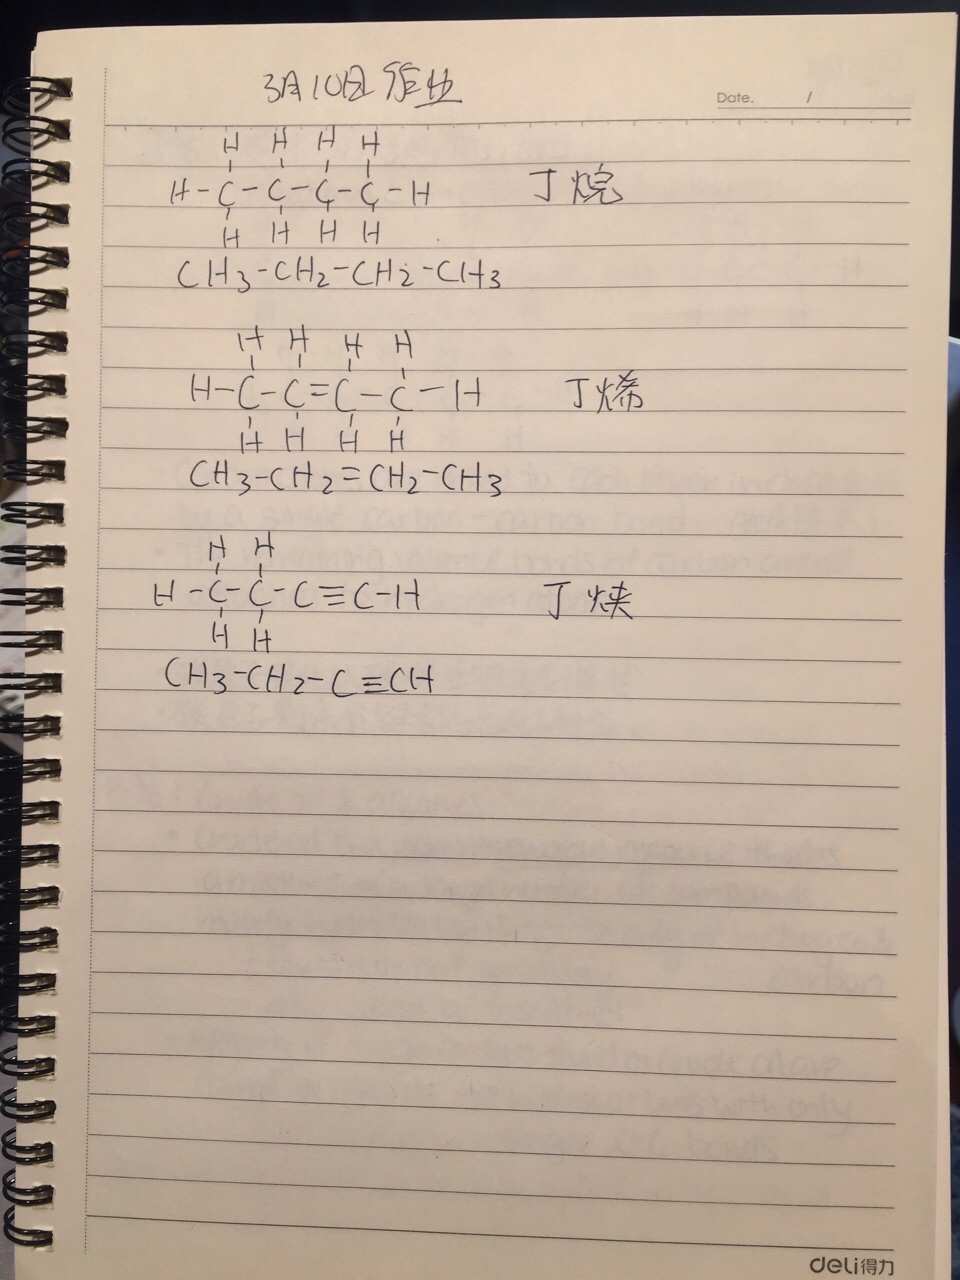 3月10日作业
Date. /
H H H H
H-C-C-C-C-H 丁烷
H H H H
CH3-CH2-CH2-CH3
H H H H
H-C-C=C-C-H 丁烯
H H H H
CH3-CH2=CH2-CH3
H H
H-C-C-C≡C-H 丁炔
H H
CH3-CH2-C≡CH
deli得力